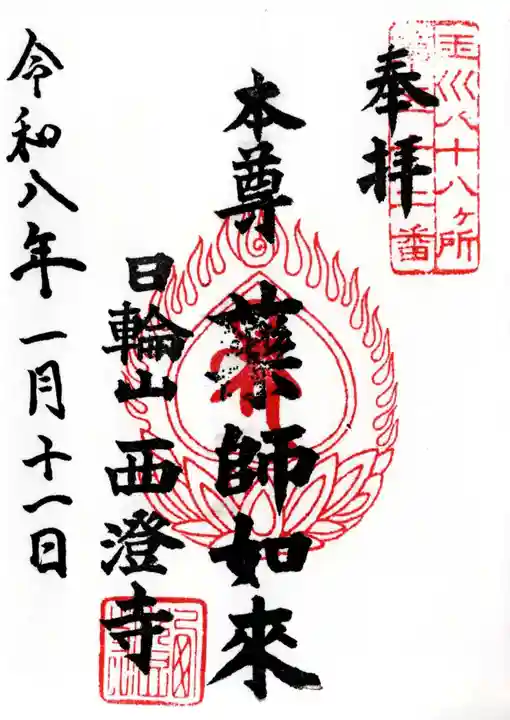 玉川八十八ヶ所
奉拝
本尊 薬師如來
日輪山 西澄寺
令和八年一月十一日